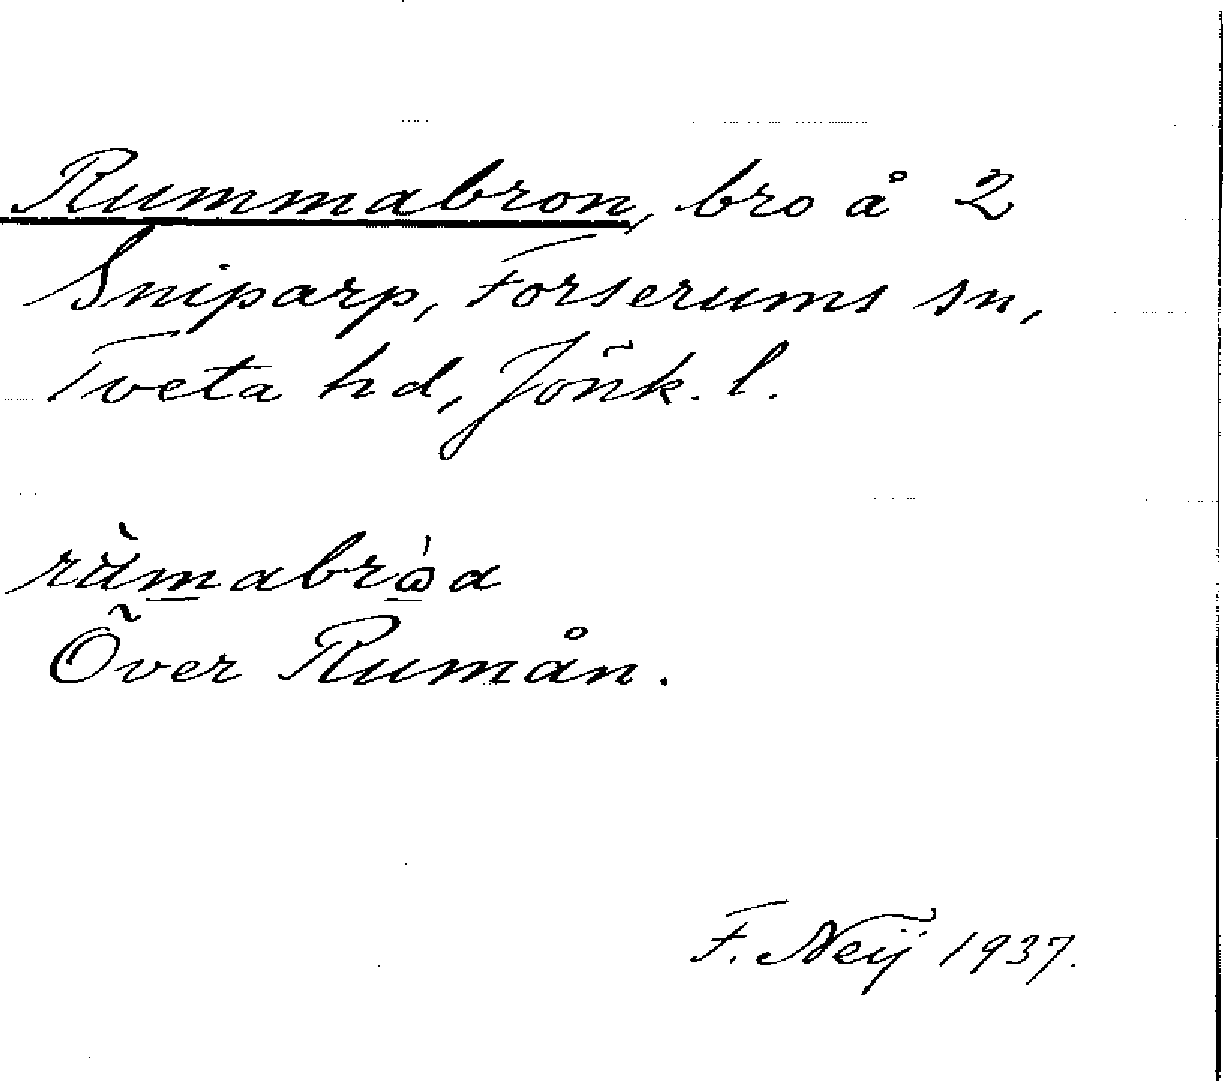 Rummabron, bro å 2
Sniparp, Forserums sn,
Tveta hd, Jönk. l.
rùm̲abrὼ̲a
Över Rumån.
F. Neij 1937.